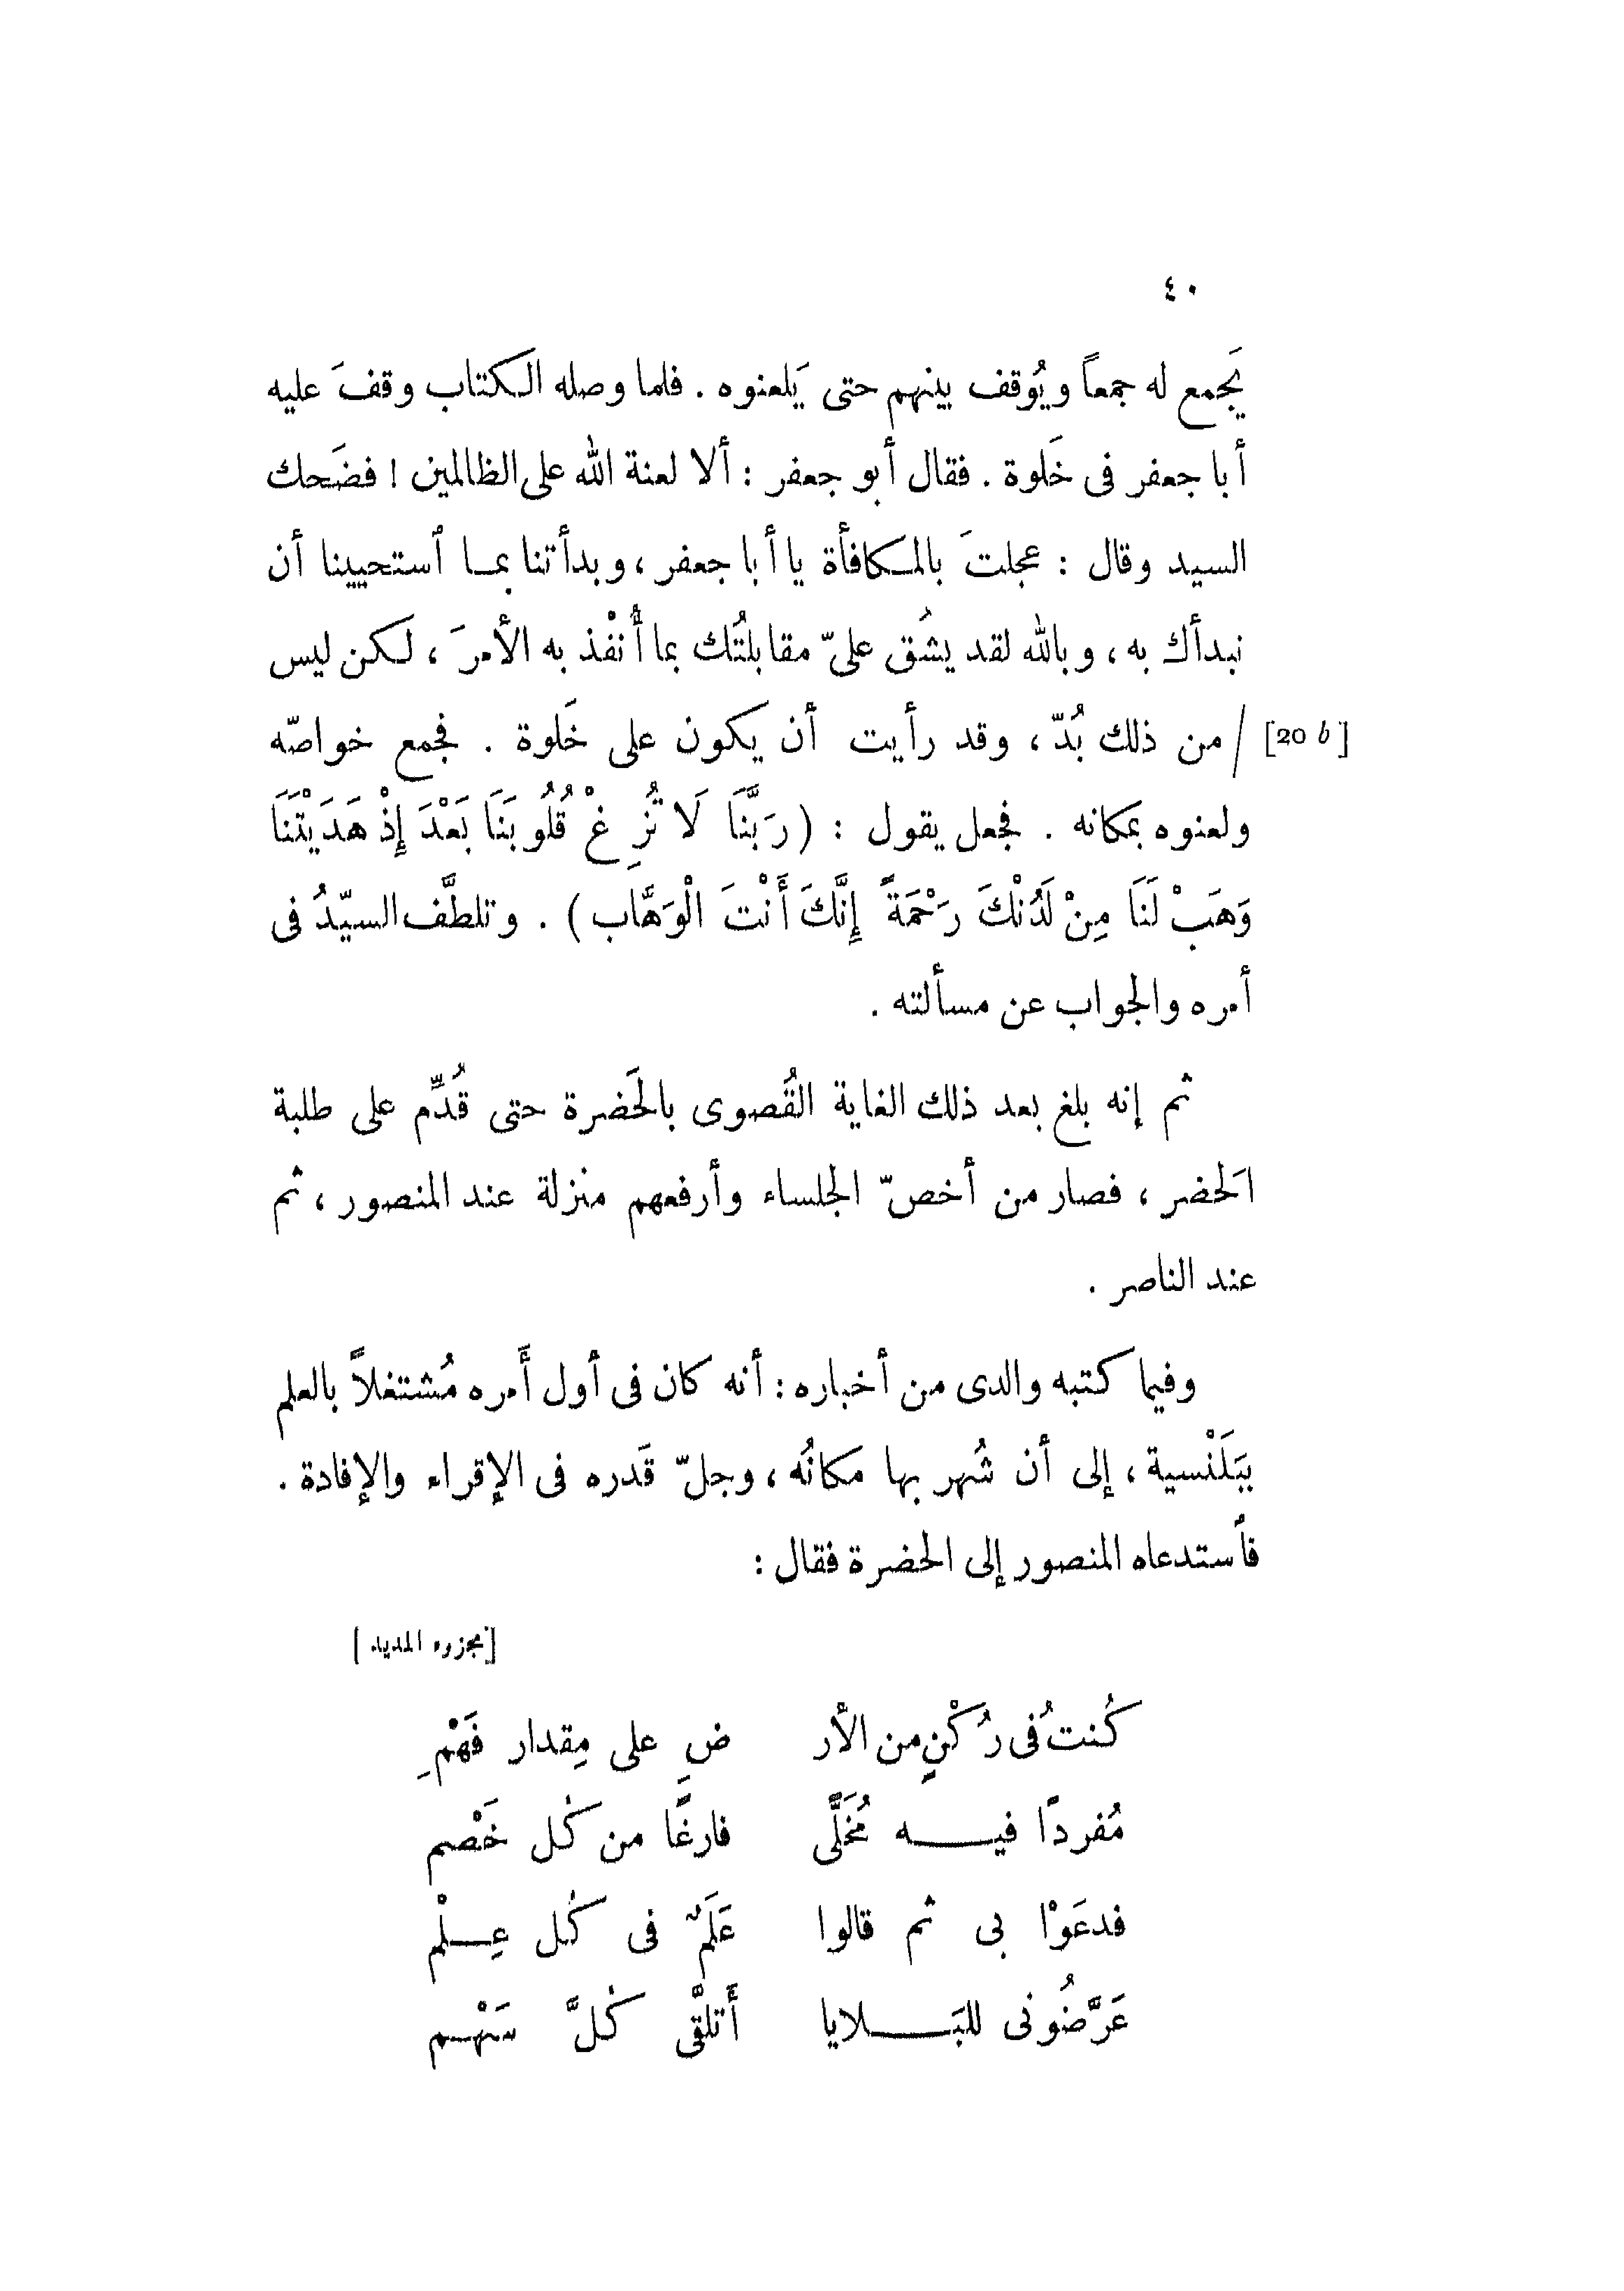 ٤٠
يَجمع له جمعاً ويُوقف بينهم حتى يَلعنوه . فلما وصله الكتاب وقفَ عليه
أبا جعفر فى خَلوة . فقال أبو جعفر : ألا لعنة الله على الظالمين ! فضَحك
السيد وقال : عجلتَ بالمكافأة يا أبا جعفر ، وبدأتنا بما ٱستحيينا أن
نبدأك به ، وبالله لقد يشُق علىّ مقابلتُك بما أُنْفْذ به الأمرَ ، لكن ليس
[20 b] / من ذلك بُدّ ، وقد رأيت أن يكون على خَلوة . فجمع خواصّه
ولعنوه بمكانه . فجعل يقول : (رَبَّنَا لَا تُزِغْ قُلُوبَنَا بَعْدَ إِذْ هَدَيْتَنَا
وَهَبْ لَنَا مِنْ لَدُنْكَ رَحْمَةً إِنَّكَ أَنْتَ الْوَهَّاب) . وتلطَّف السيّدُ فى
أمره والجواب عن مسألته .
ثم إنه بلغ بعد ذلك الغاية القُصوى بالحَضرة حتى قُدِّم على طلبة
الحَضر ، فصار من أخصّ الجلساء وأرفعهم منزلة عند المنصور ، ثم
عند الناصر .
وفيما كتبه والدى من أخباره : أنه كان فى أول أَمره مُشتغلاً بالعلم
ببَلَنْسية ، إلى أن شُهر بها مكانُه ، وجلّ قَدره فى الإقراء والإفادة .
فٱستدعاه المنصور إلى الحضرة فقال :
[مجزوء المديد]
كُنتُ فى رُكْنٍ من الأر ضِ على مِقدار فَهْمِ
مُفردًا فيه مُخَلَّى فارغًا من كُل خَصْم
فدعَوْا بى ثم قالوا عَلَمٌ فى كُل عِلْم
عَرَّضُونى للبَلايا أَتلقَّى كُلَّ سَهْم